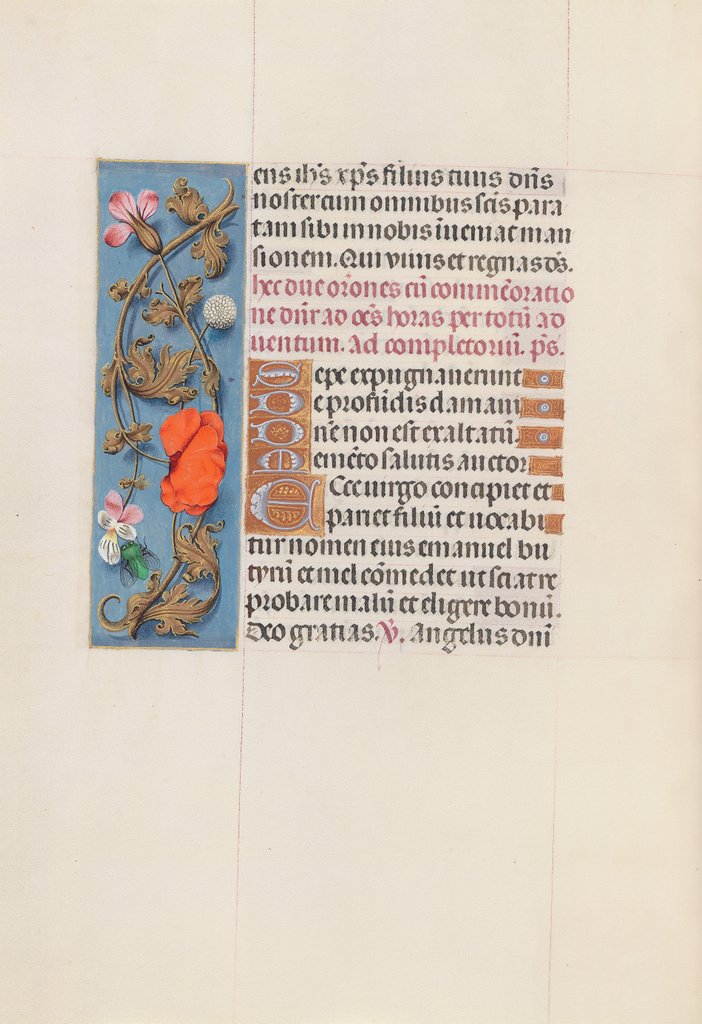 ens ih̄s xp̄s filius tuus dn̄s
noster cum omnibus sc̄is para
tam sibi in nobis īueniat man
sionem. Qui viuis et regnas ds̄.
hec due or̄ones cū commēoratio
ne dn̄r ad oēs horas per totū ad
uentum. Ad completoriū. ps̄.
Sepe expugnauerunt
De profūdis clamaui
Dn̄e non est exaltatū
Memēto salutis auctor
Ecce uirgo concipiet et
pariet filiū et uocabi
tur nomen eius emanuel bu
tyrū et mel cōmedet ut sciat re
probare malū et eligere bonū.
Deo gratias. V̄. Angelus dnī